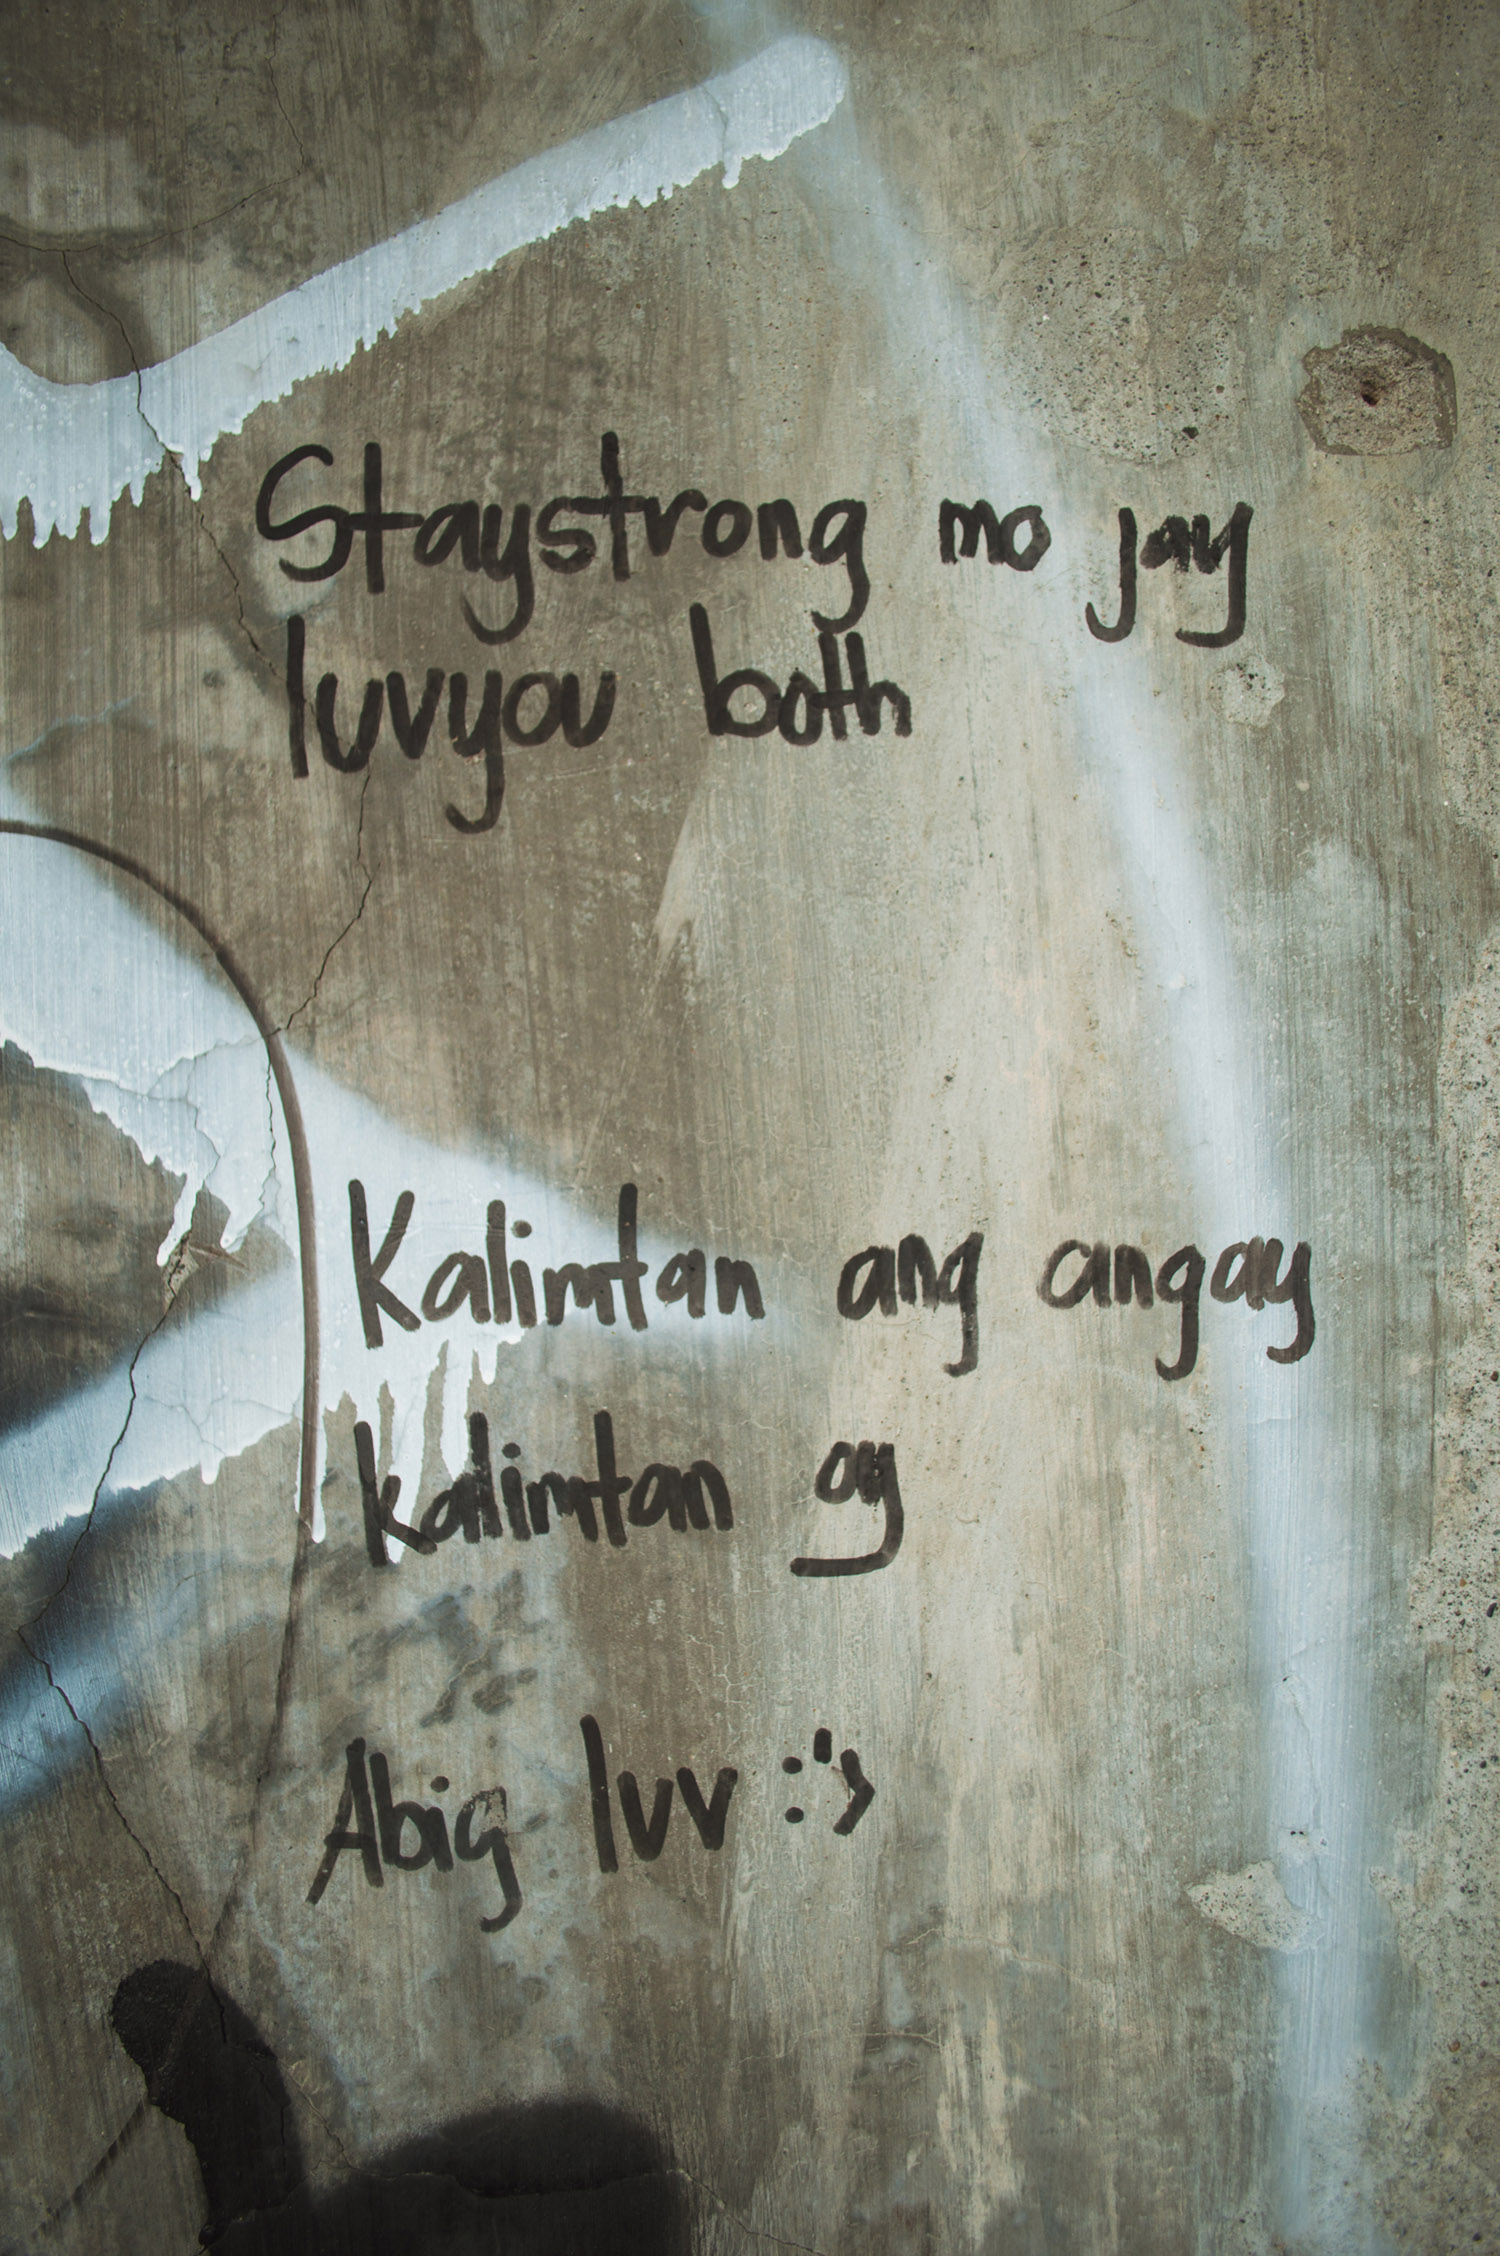 Staystrong mo jay
luvyou both
Kalimtan ang angay
kalimtan oy
Abig luv :'>